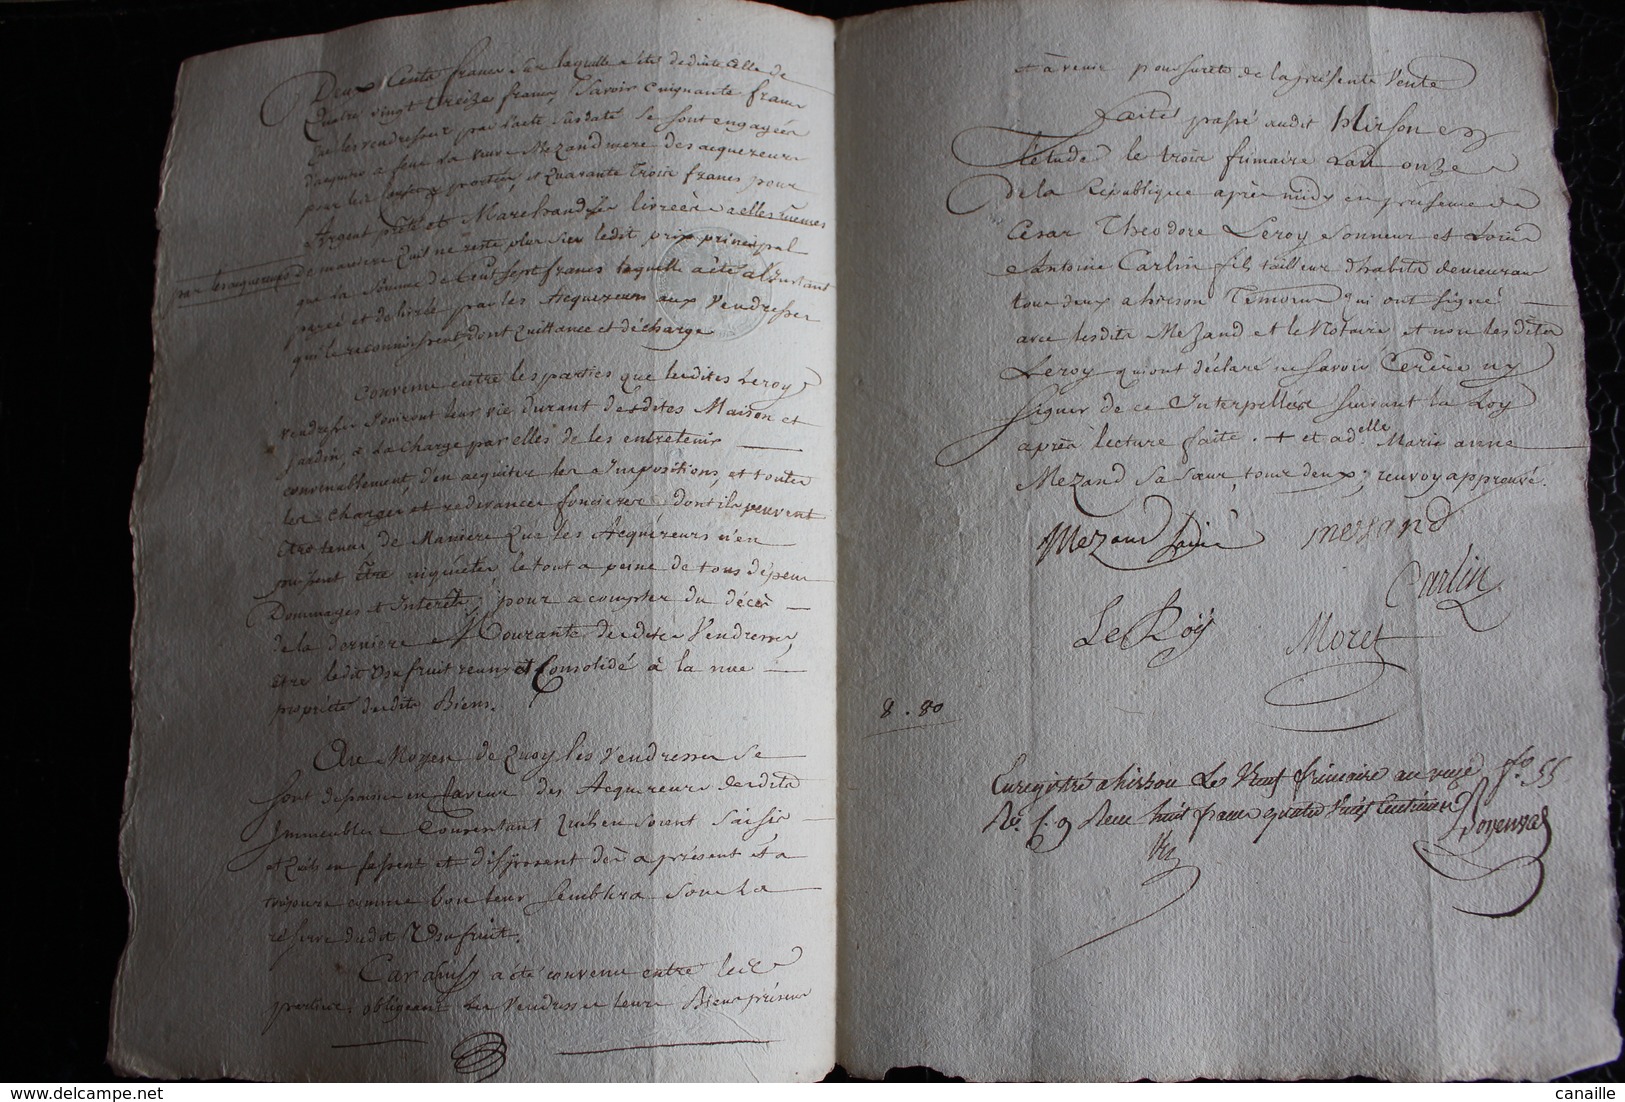 Deux Cents francs sur laquelle a été deduite celle de
Quatre vingt treize francs, Savoir Cinquante francs
que les vendresses par l'acte susdate se sont engagées
d'acquiter a feue La veuve Mezand mere des acquereurs
pour les et Quarante Trois francs pour
Argent prêté et Marchandises livrées a elles memes
par les acquereurs de maniere Qu'il ne reste plus sur ledit prix principal
que la Somme de Cent sept francs laquelle a été a l'instant
payée et delivrée par les Acquereurs aux Vendresses
qui le reconnoissent, dont quittance et décharge
Convenu entre les parties que lesdites Leroy
vendresses Jouiront leur vie durant desdites Maison et
Jardin, a La Charge par elles de les entretenir
convenablement, d'en acquiter les Impositions, et toutes
les charges et redevances foncieres, dont ils peuvent
être tenus, de Maniere Que les Acquereurs n'en
puissent être inquiétés, le tout a peine de tous depens
Dommages et Interêts; pour a compter du décès
de la derniere Mourante desdites Vendresses,
être ledit Usufruit reuni et Consolidé à la nue
propriété desdits Biens.
Au Moyen de Quoy les Vendresses se
sont dessaisies en faveur des Acquereurs desdits
Immeubles Consentant Qu'ils en soient Saisis
et Qu'ils en fassent et disposent dès a présent et a
toujours comme bon leur semblera sous La
réserve dudit Usufruit.
Car ainsy a été convenu entre les
parties, obligeant les Vendresses leurs Biens présens
et à venir pour sureté de la présente Vente
Fait et passé audit hirson en
l'etude le trois frimaire L'an onze
de la République après midy en présence de
César Théodore Leroy Sonneur et Louis
Antoine Carlin fils tailleur d'habits demeurans
tous deux a hirson Temoins qui ont signé
avec lesdits Mezand et le Notaire, et non lesdites
Leroy qui ont déclaré ne savoir Ecrire ny
signer de ce Interpellées suivant la Loy
après lecture faite. + et ad.elle Marie anne
Mezand sa sœur, tous deux; renvoy approuvé.
Mezand l'ainé Mezand
Carlin
Le Roy Moret
8 . 80
Enregistré a hirson Le Neuf frimaire an onze fo. 55
Ro. C. 9 Reçu huit francs quatre vingt Centimes